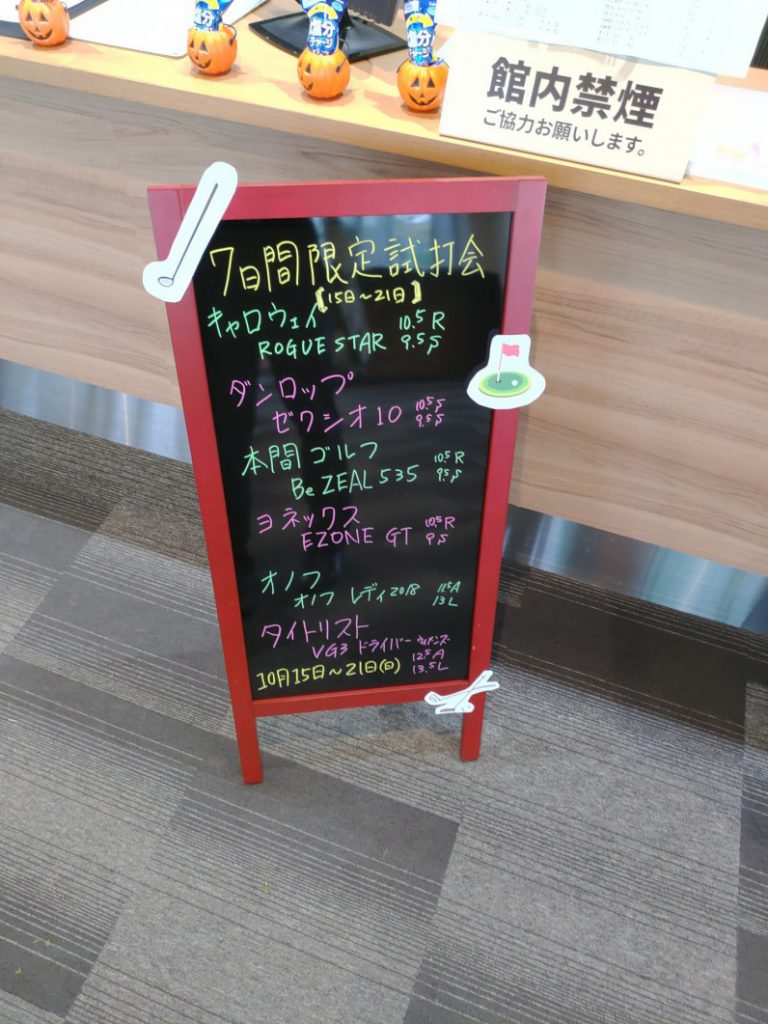 塩分
チャージ
塩分
チャージ
館内禁煙
ご協力お願いします。
7日間限定試打会
【15日~21日】
キャロウェイ 10.5 R
ROGUE STAR 9.5 S
ダンロップ
ゼクシオ10 10.5 S
9.5 S
本間ゴルフ 10.5 R
Be ZEAL 535 9.5 S
ヨネックス 10.5 R
EZONE GT 9 S
オノフ
オノフ レディ2018 11.5 A
13 L
タイトリスト
VG3 ドライバー ウィメンズ
12.5 A
10月15日~21日(日) 13.5 L